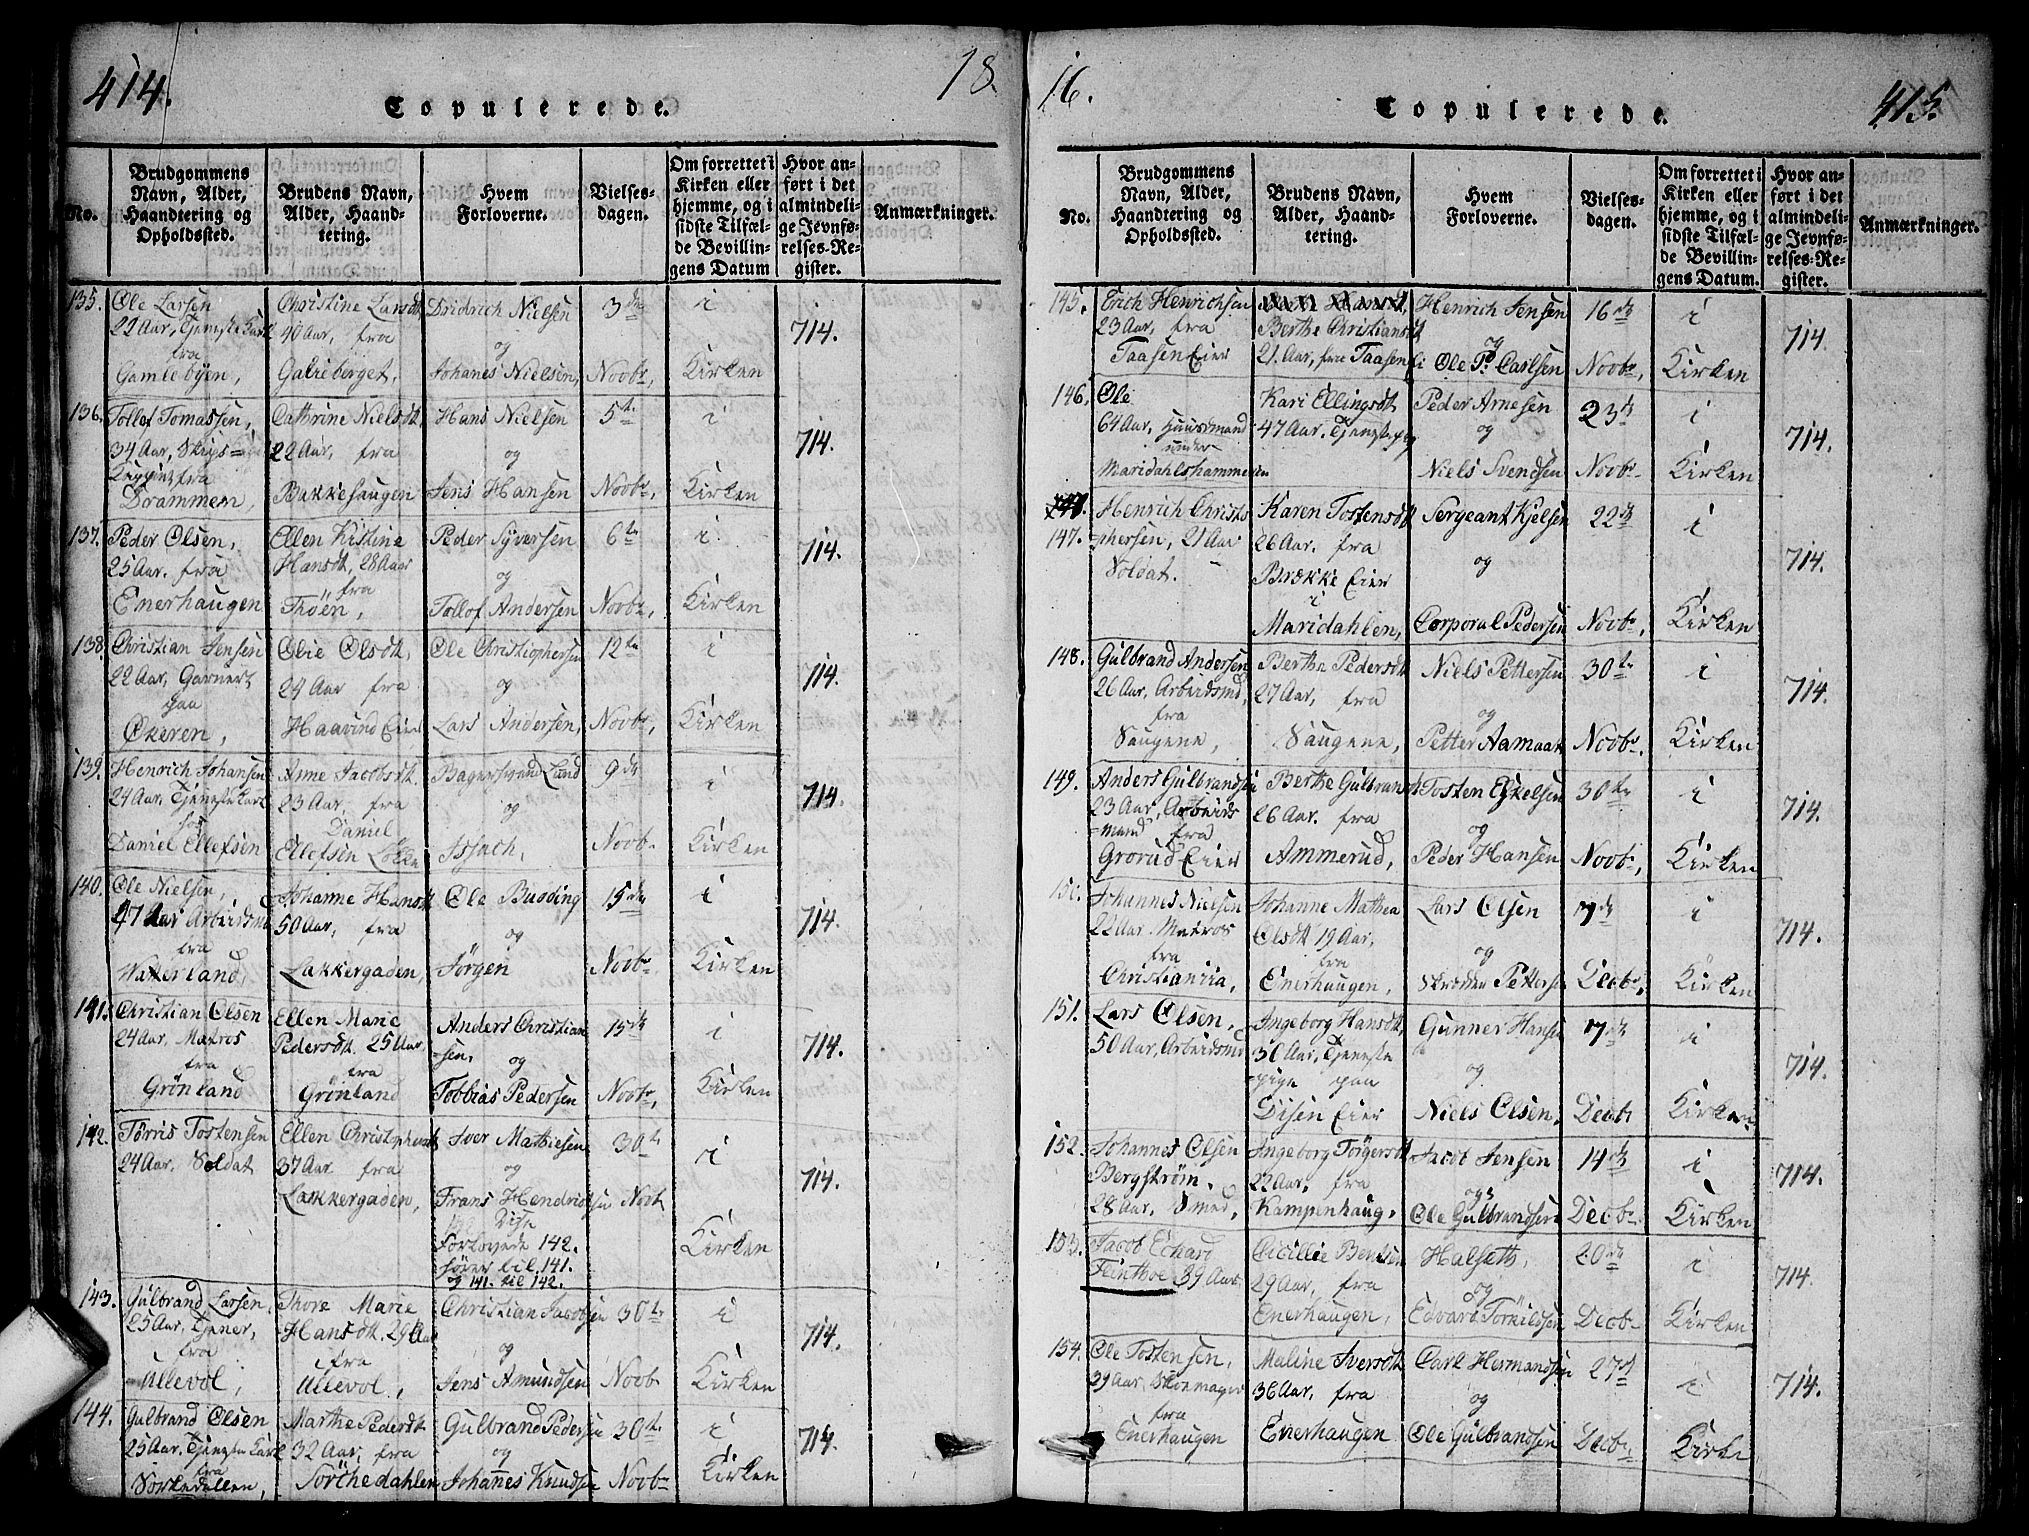 414.
18
Copulerede.
No.
Brudgommens Navn, Alder, Haandtering og Opholdssted.
Brudens Navn, Alder, Haandtering.
Hvem Forloverne.
Vielsesdagen.
Om forrettet i Kirken eller hjemme, og i sidste Tilfælde Bevillingens Datum
Hvor anført i det almindelige Jevnførelses-Register.
Anmærkninger.
135. Ole Larsen 22 Aar, Tjeneste Karl fra Gamlebyen,
Christine Larsdt. 40 Aar, fra Galgeberget,
Dridrich Nielsen og Johanes Nielsen,
3de Novbr,
i Kirken
714.
136. Tollef Tomassen, 34 Aar, fra Drammen,
Cathrine Nielsdt, 22 Aar, fra Bakkehaugen
Hans Nielsen og Jens Hansen
5te Novbr,
i Kirken
714.
137. Peder Olsen, 25 Aar. fra Enerhaugen
Ellen Kistine Hansdt, 28 Aar fra Thöen,
Peder Syversen og Tollof Andersen
6te Novbr,
i Kirken
714.
138. Christian Jensen 22 Aar, Garnert paa Økeren,
Olie Olsdt, 24 Aar fra Haavind Eier
Ole Christophersen og Lars Andersen,
12te Novbr,
i Kirken
714.
139. Henrich Johansen 24 Aar, Tjeneste Karl hos Daniel Ellefsen
Anne Jacobsdt. 23 Aar, fra Daniel Ellefsen Løkke
Bagersvend Lund og Issach,
9de Novb.
i Kirken
714.
140. Ole Nielsen, 47 Aar Arbeidsmd fra Watterland,
Johanne Hansdt 50 Aar, fra Lakkergaden,
Ole Budding og Jörgen
15de Novbr
i Kirken
714.
141. Christian Olsen 24 Aar, Matros fra Grönland
Ellen Marie Pedersdt. 25 Aar, fra Grönland
Anders Christiansen, og Tobias Pedersen
15de Novbr,
i Kirken
714.
142. Törris Tostensen 24 Aar. Soldat
Ellen Christophersdt 37 Aar fra Lakkergaden,
Iver Mathiesen og Frans Hendriksen
Disse Forlovede 142. hører til 141. og 141. til 142.
30te Novb
i Kirken
714.
143. Gulbrand Larsen, 25 Aar, Tjener, fra Ullevol,
Thore Marie Hansdt. 29 Aar fra Ullevol,
Christian Jacobsen og Jens Amundsen
30te Novb
i Kirken
714.
144. Gulbrand Olsen 25 Aar. Tjeneste Karl fra Sørkedallen,
Marthe Pedersdt. 32 Aar, fra Sørchedahlen
Gulbrand Pedersen og Johannes Knudsen
30te Novbr
i Kirken
714.
16.
415.
Copulerede.
No.
Brudgommens Navn, Alder, Haandtering og Opholdssted.
Brudens Navn, Alder, Haandtering.
Hvem Forloverne.
Vielsesdagen.
Om forrettet i Kirken eller hjemme, og i sidste Tilfælde Bevillingens Datum.
Hvor anført i det almindelige Jevnførelses-Register.
Anmærkninger.
145. Erich Henrichsen 23 Aar, fra Taasen Eier
Berthe Christiansdt 21. Aar, fra Taasen Ei
Henrich Jensen og Ole Pd. Carlsen
16de Novbr,
i Kirken
714.
146. Ole 64 Aar, Huusmand under Maridahlshammeren
Kari Ellingsdt 47 Aar. Tjenstepig
Peder Arnesen og Niels Svendsen
23de Novbr
i Kirken
714.
147. Henrich Christophersen, 21 Aar Soldat.
Karen Tostensdt 26 Aar. fra Brække Eier i Maridahlen,
Sergeant Kjelsen og Corporal Pedersen
22de Novbr,
i Kirken
714.
148. Gulbrand Andersen 26 Aar, Arbeidsmd, fra Saugene,
Berthe Pedersdt 27 Aar, fra Saugene,
Niels Pettersen og Petter Aamodt
30te Novbr
i Kirken
714.
149. Anders Gulbrandsen 23 Aar, Arbeidsmand fra Grorud Eier
Berthe Gulbransdt 26 Aar. fra Ammerud,
Tosten Eskelsen og Peder Hansen
30te Novbr,
i Kirken
714.
150. Johannes Nielsen 22 Aar. Matros fra Christiania,
Johanne Mathea Olsdt 19 Aar, fra Enerhaugen,
Lars Olsen og Skræder Pettersen
7de Decbr,
i Kirken
714.
151. Lars Olsen, 50 Aar, Arbeidsmd
Ingeborg Hansdt, 30 Aar, Tjeneste pige paa Disen Eier
Gunner Hansen og Niels Olsen,
7de Decb,
i Kirken
714.
152. Johannes Olsen Bergström, 28 Aar. Smed,
Ingeborg Törgersdt 22 Aar, fra Kampenhaug,
Jacob Jensen og Ole Gulbrandsen
14de Decbr
i Kirken
714.
153. Jacob Echard Feinthoe 39 Aar
Cicillie Bentsen 29 Aar, fra Enerhaugen,
Halseth, og Edvard Törkildsen
20de Decbr
i Kirken
714.
154. Ole Tostensen, 39 Aar, Skomager fra Enerhaugen
Maline Iversdt 36 Aar. fra Enerhaugen
Carl Hermandsen og Ole Gulbrandsen
27de Decbr
i Kirke
714.